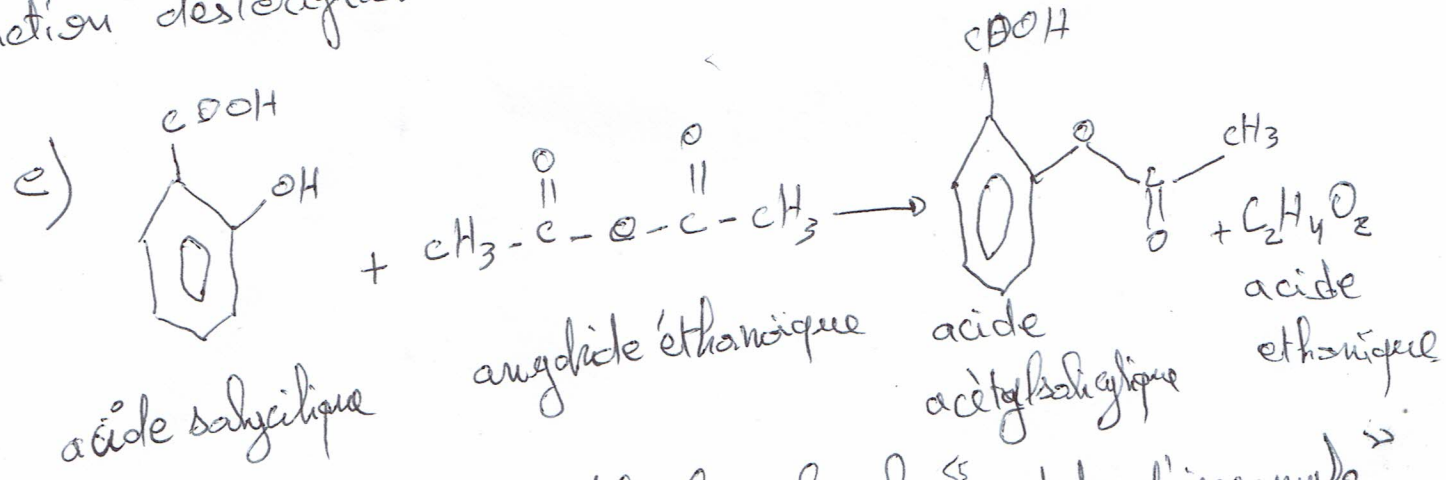 e)
COOH
OH
+
CH3 - C - O - C - CH3
O
O
COOH
O
C
CH3
O
+ C2H4O2
acide salycilique
anydride éthanoïque
acide
acétylsalicylique
acide
ethanique